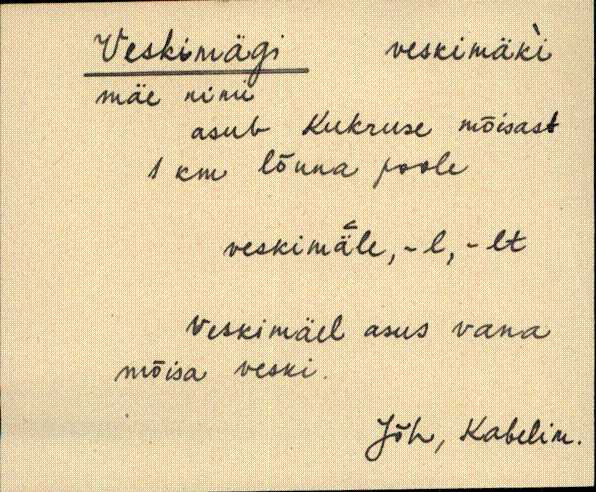 Veskimägi veskimäk̀i
mäe nimi
asub Kukruse mõisast
1 km lõuna poole
veskimäle, -l, -lt
Veskimäel asus vana
mõisa veski.
Jõh, Kabelim.